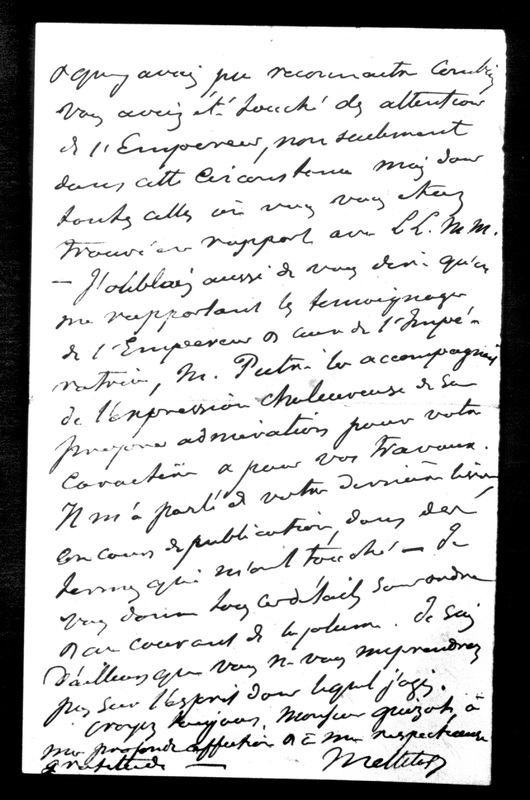 avait pu reconnaitre combien
vous aviez été touché des attentions
de l'Empereur, non seulement
dans cette circonstance mais dans
toutes celles où vous vous étiez
trouvé en rapport avec LL. MM.
— J'oubliais aussi de vous dire qu'en
me rapportant les temoignages
de l'Empereur et ceux de l'Impé-
ratrice, M. Pietri les accompagnait
de l'expression chaleureuse de sa
propre admiration pour votre
caractère et pour vos travaux.
Il m'a parlé de votre dernière
en cours de publication, dans des
termes qui m'ont touché — Je
vous donne tous ces détails sans ordre
et au courant de la plume. Je sais
d'ailleurs que vous ne vous méprendrez
pas sur l'esprit dans lequel j'agis.
Croyez toujours, Monsieur Guizot, à
ma profonde affection et à ma respectueuse
gratitude —